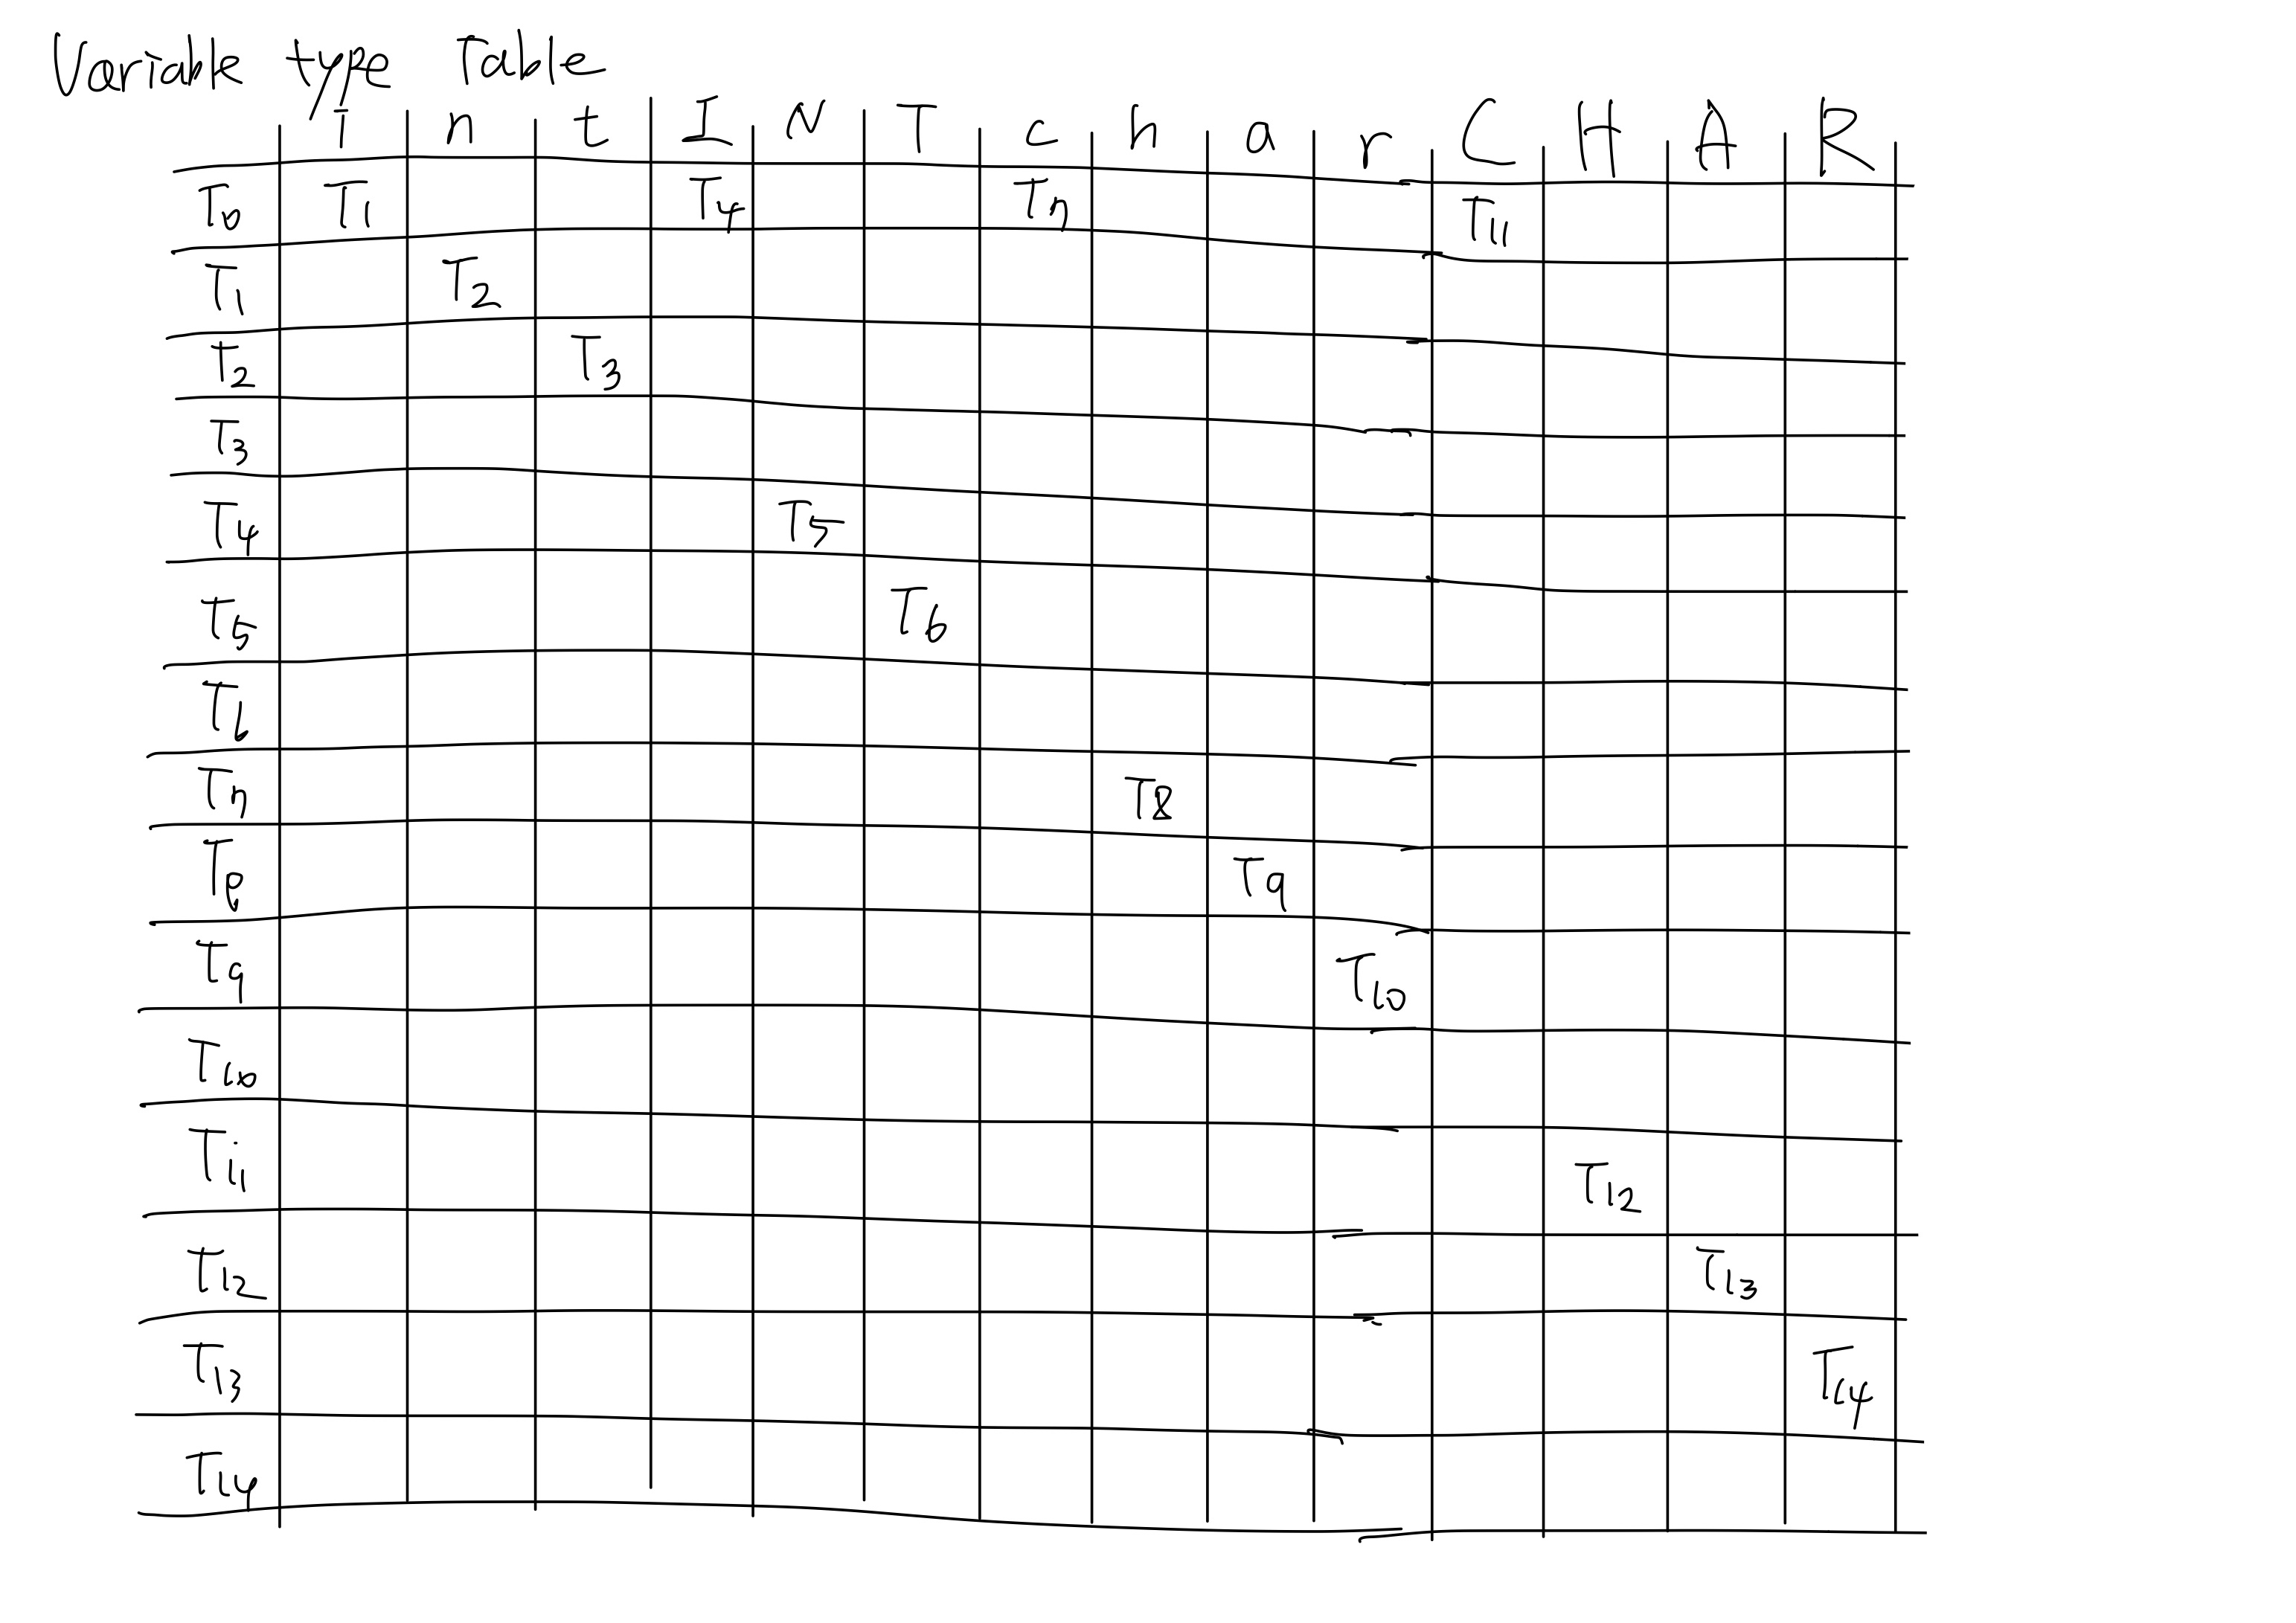 Variable type Table
i n t I N T c h a r C H A R
T0 T1 T4 T7 T11
T1 T2
T2 T3
T3
T4 T5
T5 T6
T6
T7 T8
T8 T9
T9 T10
T10
T11 T12
T12 T13
T13 T14
T14